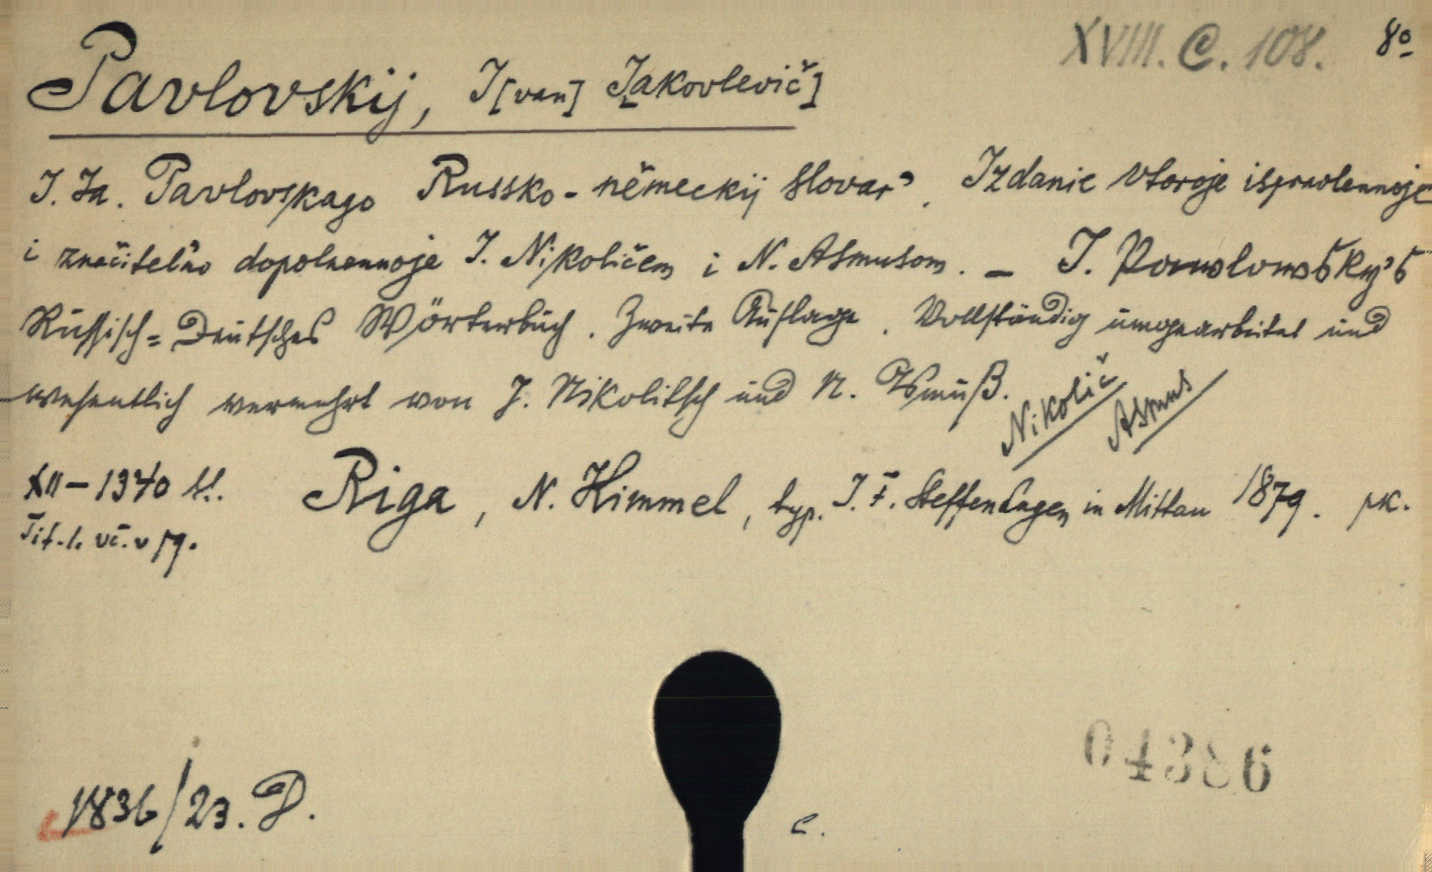 XVIII. C. 108. 8º
Pavlovskij, I[van] J[akovlevič]
I. Ja. Pavlovskago Russko-německij slovar'. Izdanie vtoroje ispravlennoje
i značitel'no dopolnennoje I. Nikoličem i N. Asmusom. — I. Pawlowsky's
Russisch=Deutsches Wörterbuch. Zweite Auflage. Vollständig umgearbeitet und
wesentlich vermehrt von J. Nikolitsch und N. Asmuß.
Nikolič
Asmus
XII—1340 ss. Riga, N. Himmel, typ. I. F. Steffenhagen in Mittau 1879. pk.
Tit. l. vč. v
1836/23. D.
c.
04386